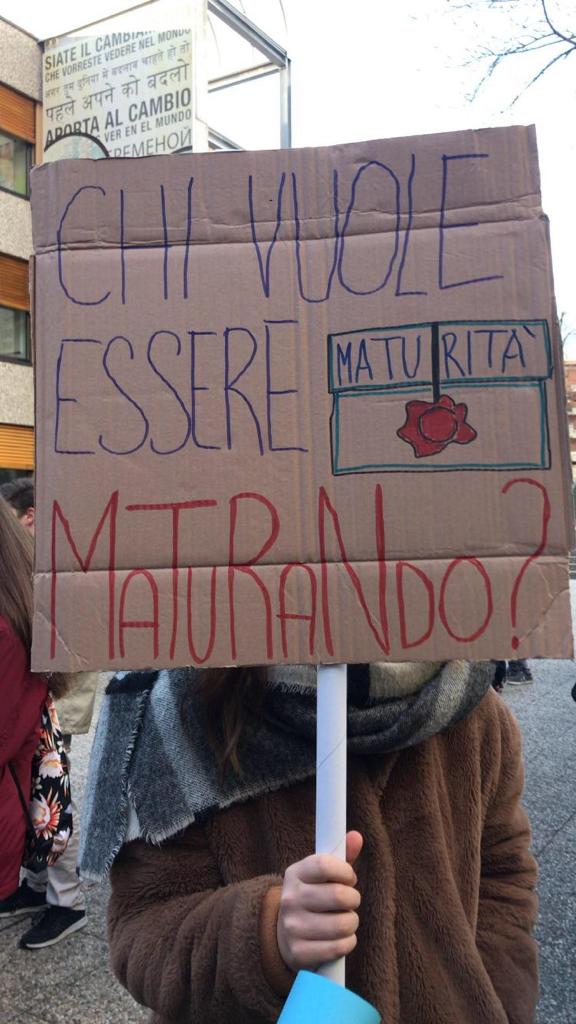 SIATE IL CAMBIA
CHE VORRESTE VEDERE NEL MONDO
अगर तुम दुनिया में बदलाव चाहते हो तो
पहले अपने को बदलो
PORTA AL CAMBIO
VER EN EL MUNDO
РЕМЕНОЙ
CHI VUOLE
ESSERE
MATURITÀ
MATURANDO?